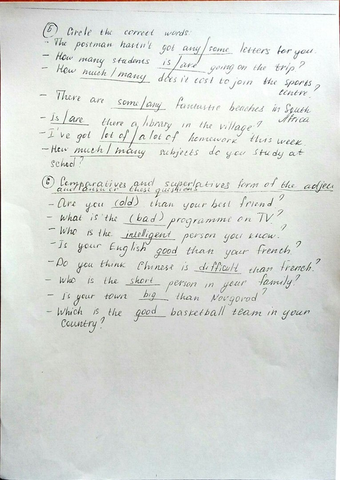 5 Circle the correct words:
- The postman hasn't got any/some letters for you.
- How many students is/are going on the trip?
- How much/many does it cost to join the sports
centre?
- There are some/any fantastic beaches in South
Africa
- Is/are there a library in the village?
- I've got lot of/a lot of homework this week
- How much/many subjects do you study at
school?
6 Comparatives and superlatives form of the adject
and answer these questions
- Are you (old) than your best friend?
- What is the (bad) programme on TV?
- Who is the intelligent person you know?
- Is your English good than your French?
- Do you think Chinese is difficult than French?
- Who is the short person in your family?
- Is your town big than Novgorod?
- Which is the good basketball team in your
country?